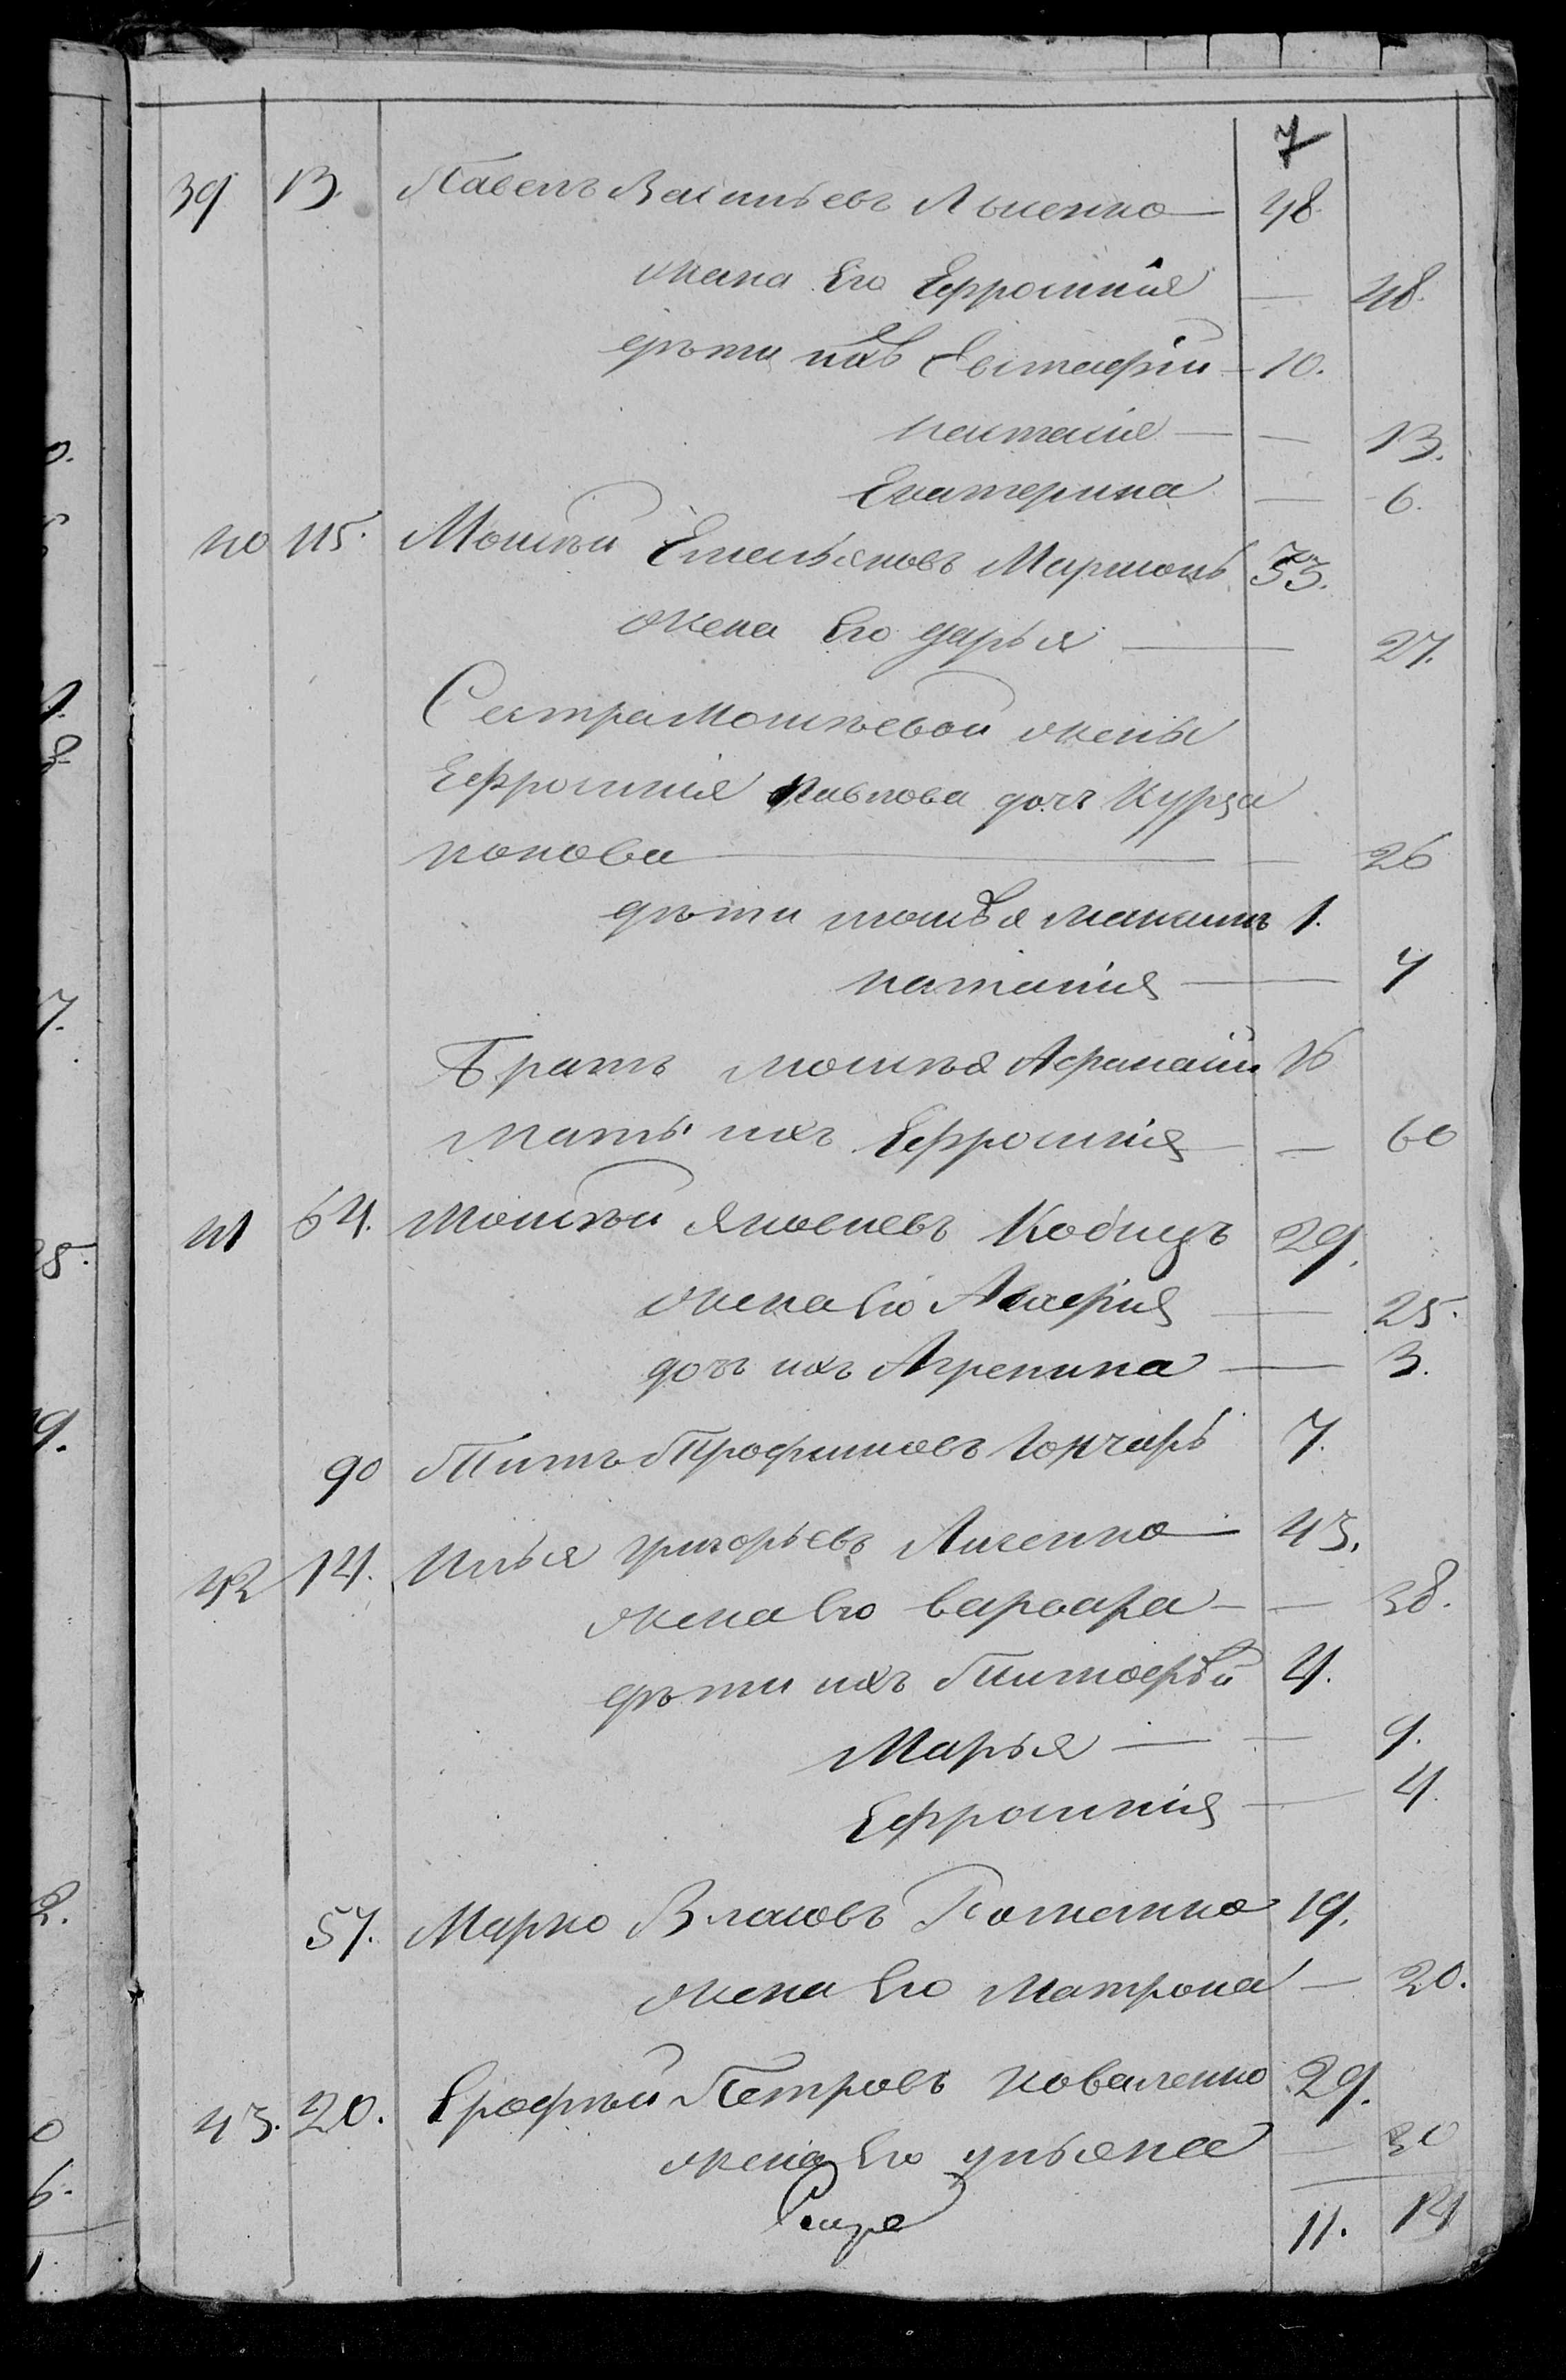 7
39 13. Павелъ Васильевъ Лысенко 48
жена Его Ефросинія — 48.
дѣти ихъ Евстафій 10.
Наталія — 13.
Екатерина — 6.
40 115. Моисѣй Емельяновъ 33.
жена Его Дарья — 27.
Сестра Моисѣевой жены
Ефросинія Павлова дочь Курза
конова — 26
дѣти Моисѣя Максимъ 1.
Наталія — 4
Братъ Моисѣя Афанасій 16
Мать ихъ Ефросинія — 60
41 64. Моисѣй Яковлевъ Кобицъ 29.
жена Его Агафія — 25.
дочь ихъ Агрепина — 3.
90 Титъ Трофимовъ Гончаръ 7.
42 14. Илья Григорьевъ Лисенко 43.
жена Его Варвара — 38.
дѣти ихъ Тимофѣй 4.
Марья — 9.
Ефросинія — 4.
57. Марко Власовъ Потапенко 19.
жена Его Матрона — 20.
43. 20. Ерофѣй Петровъ Коваленко 29.
жена Его Ульяна — 30
11. 14